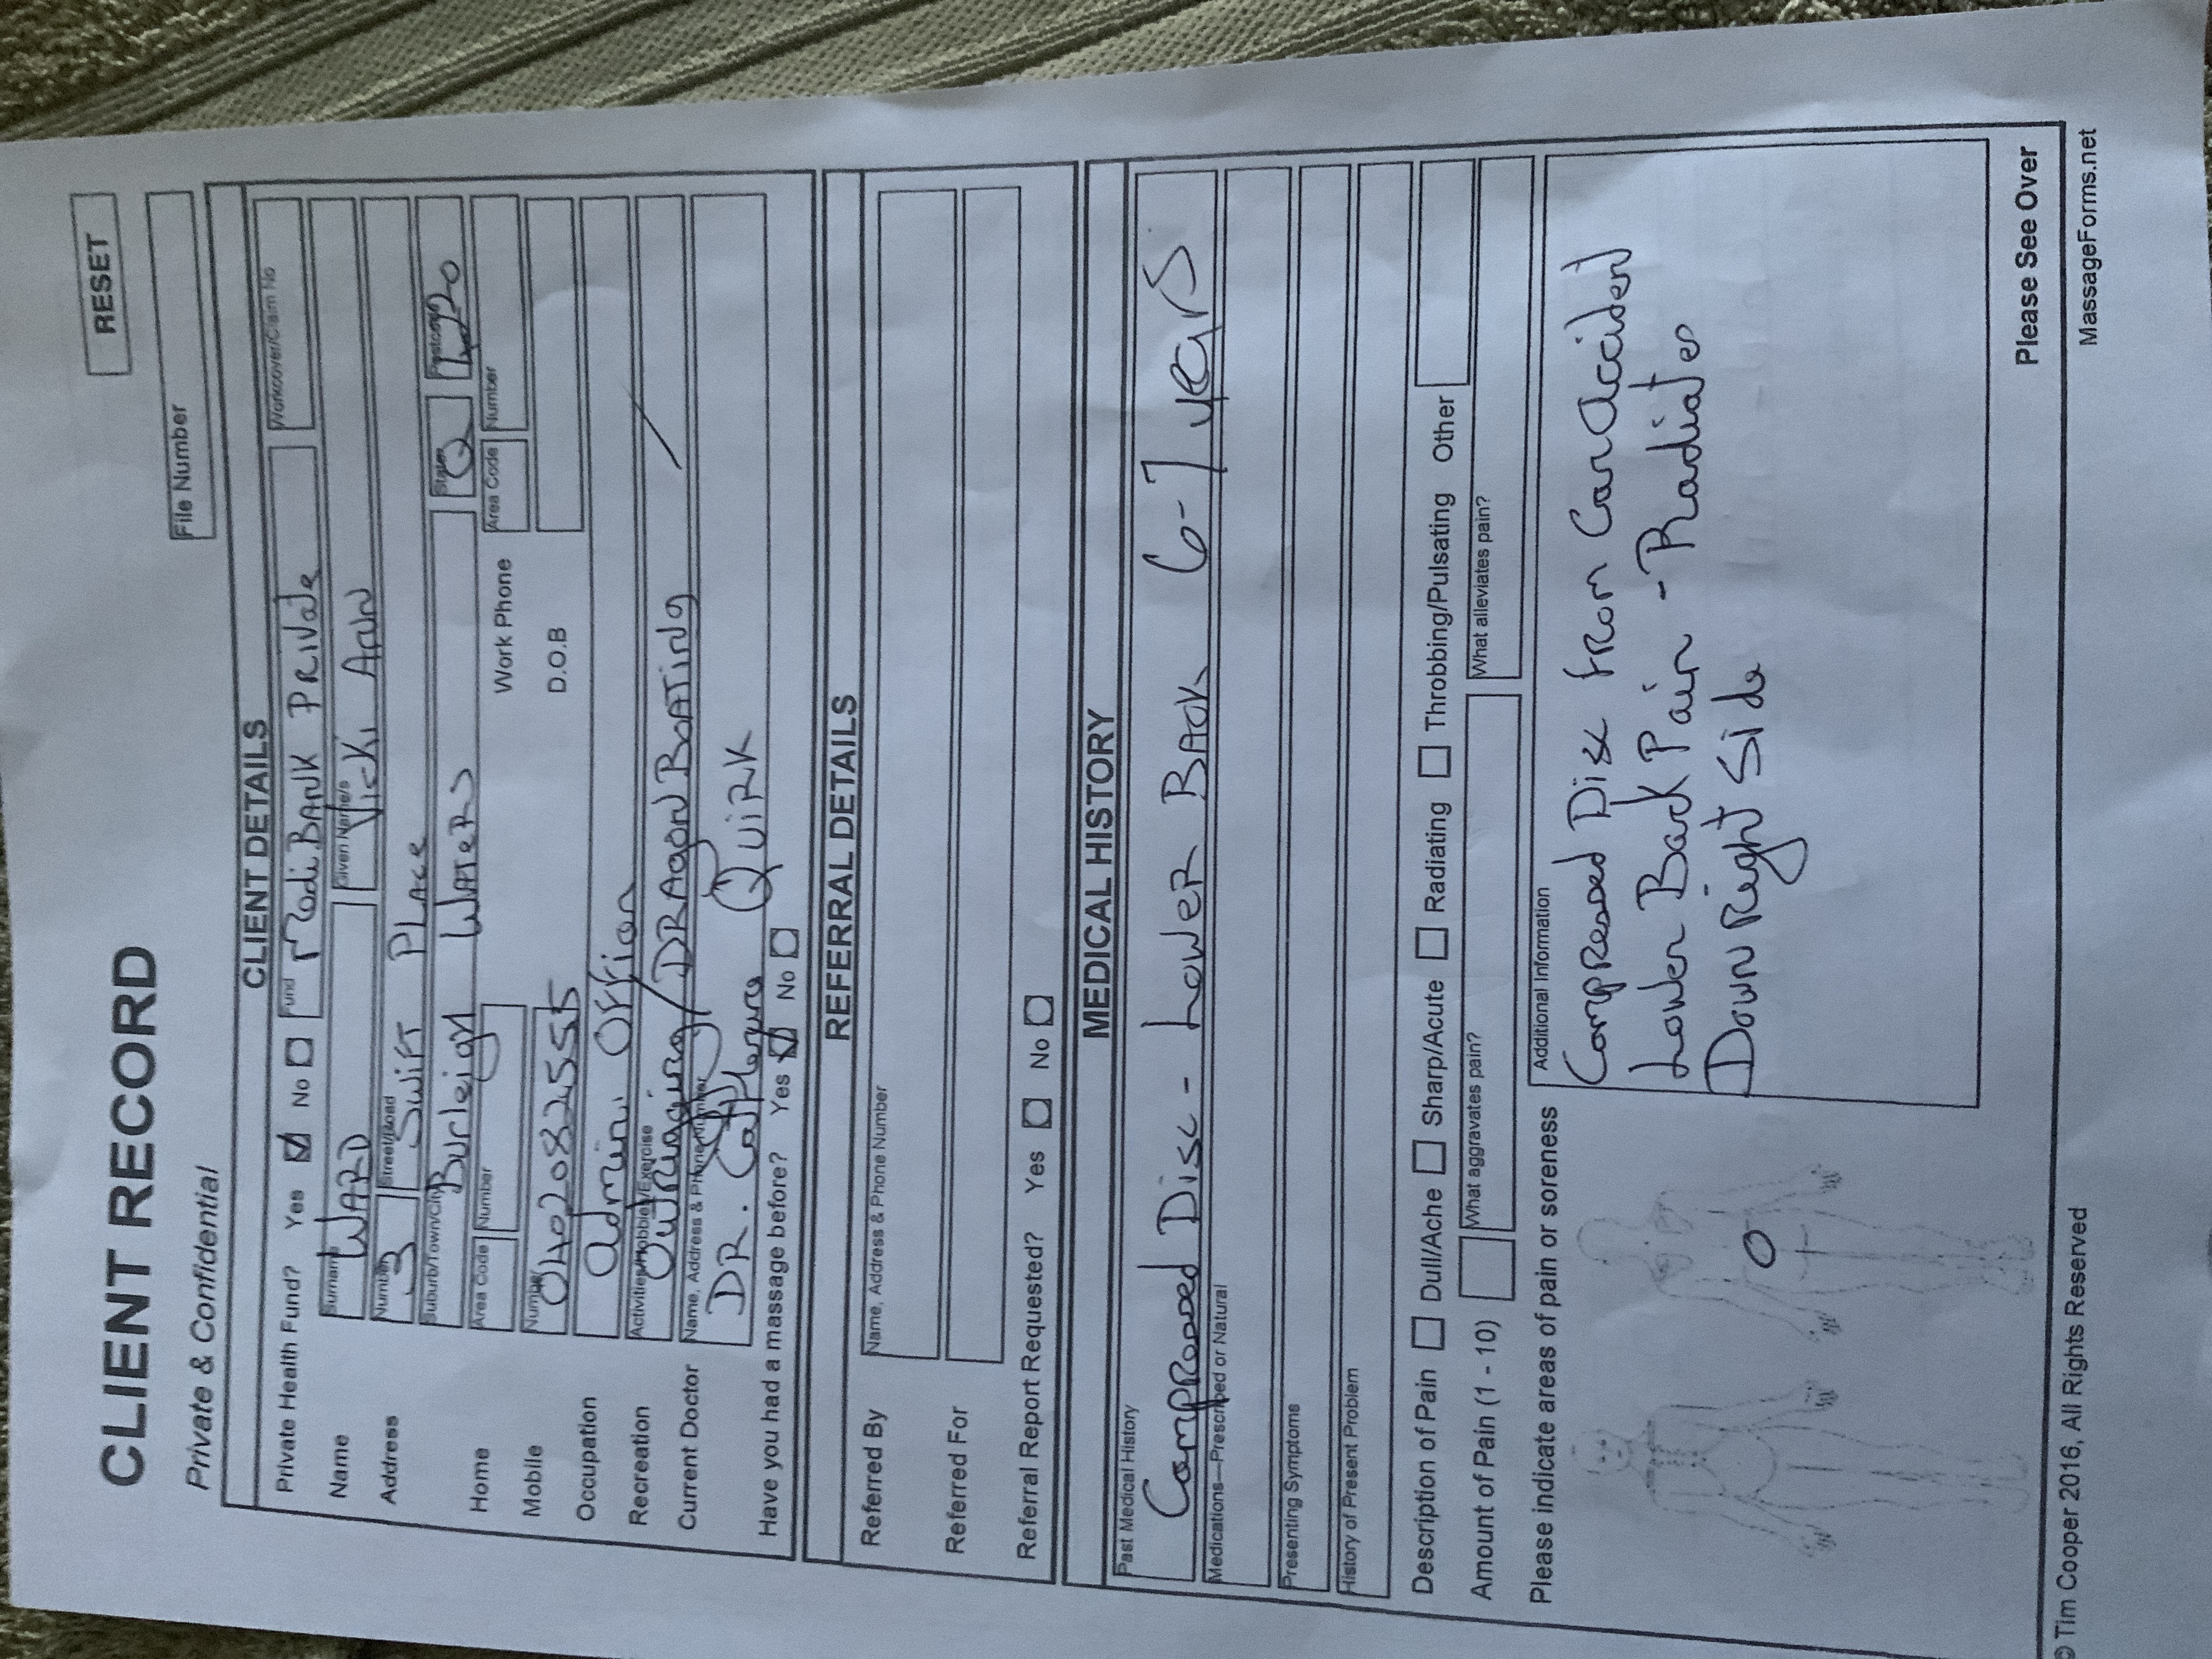 RESET
CLIENT RECORD
File Number
Private & Confidential
CLIENT DETAILS
Private Health Fund? Yes No Fund MediBANK PRivate Workcover/Claim No
Name Surname WARD Given Name/s Vicki Ann
Address Number 3 Street/Road Swift PLAce
Suburb/Town/City Burleigh WATeRS State Q Postcode
Home Area Code Number Work Phone Area Code Number
Mobile Number D.O.B
Occupation admin Officer
Recreation Activities/Hobbies/Exercise Outrigging / DRAgon BoATing
Current Doctor Name, Address & Phone Number DR. QuiRK
Have you had a massage before? Yes No
REFERRAL DETAILS
Referred By Name, Address & Phone Number
Referred For
Referral Report Requested? Yes No
MEDICAL HISTORY
Past Medical History
Compressed Disc - LoweR BAck 6-7 yeaRS
Medications—Prescribed or Natural
Presenting Symptoms
History of Present Problem
Description of Pain Dull/Ache Sharp/Acute Radiating Throbbing/Pulsating Other
Amount of Pain (1 - 10) What aggravates pain? What alleviates pain?
Please indicate areas of pain or soreness
Additional Information
Compressed Disc from Car accident
Lower Back Pain - Radiates
Down Right Side
Please See Over
© Tim Cooper 2016, All Rights Reserved
MassageForms.net